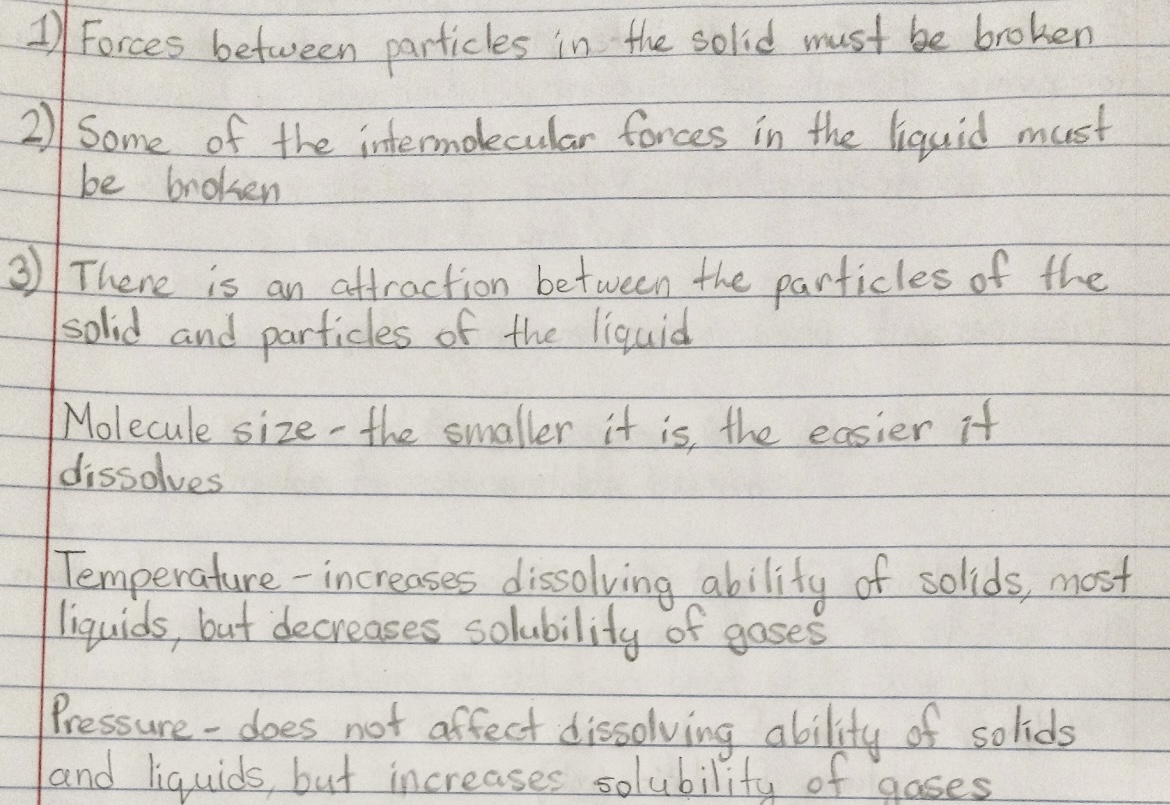 1) Forces between particles in the solid must be broken
2) Some of the intermolecular forces in the liquid must
be broken
3) There is an attraction between the particles of the
solid and particles of the liquid
Molecule size - the smaller it is, the easier it
dissolves
Temperature - increases dissolving ability of solids, most
liquids, but decreases solubility of gases
Pressure - does not affect dissolving ability of solids
and liquids, but increases solubility of gases